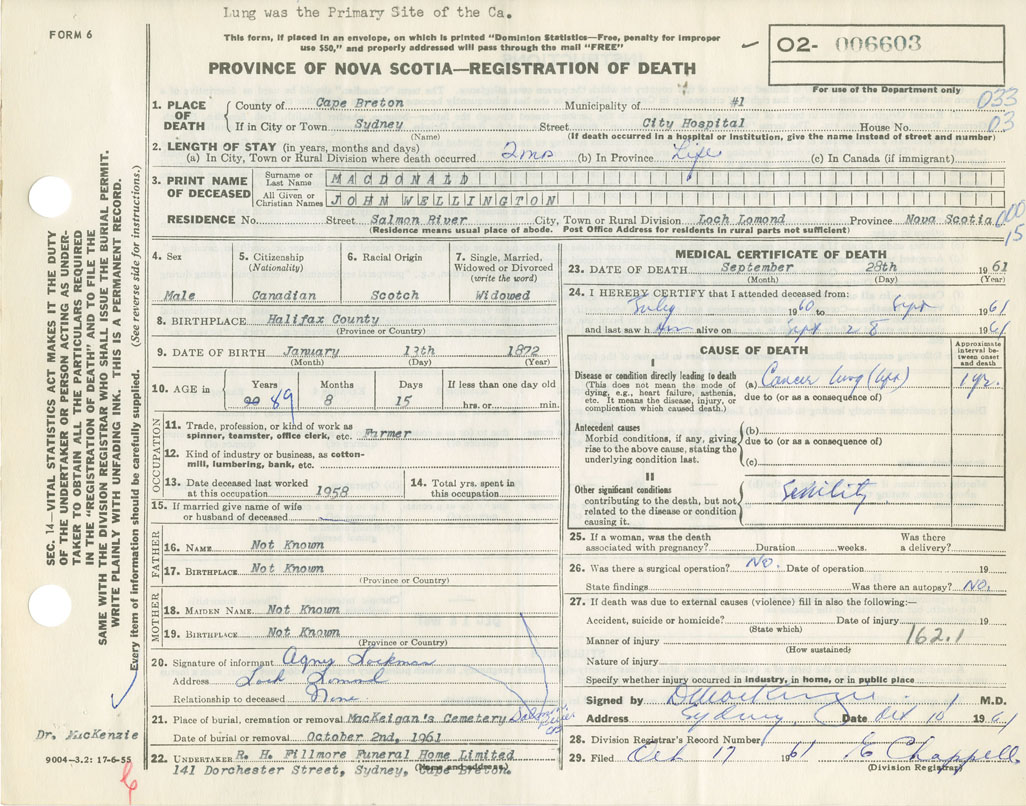 Lung was the Primary Site of the Ca.
FORM 6
This form, if placed in an envelope, on which is printed "Dominion Statistics—Free, penalty for improper
use $50," and properly addressed will pass through the mail "FREE"
02- 006603
PROVINCE OF NOVA SCOTIA—REGISTRATION OF DEATH
For use of the Department only
033
03
1. PLACE OF DEATH County of Cape Breton Municipality of #1
If in City or Town Sydney Street City Hospital House No.
(Name) (If death occurred in a hospital or institution, give the name instead of street and number)
2. LENGTH OF STAY (in years, months and days)
(a) In City, Town or Rural Division where death occurred 2mos (b) In Province Life (c) In Canada (if immigrant)
3. PRINT NAME OF DECEASED Surname or Last Name MACDONALD
All Given or Christian Names JOHN WELLINGTON
RESIDENCE No. Street Salmon River City, Town or Rural Division Loch Lomond Province Nova Scotia
(Residence means usual place of abode. Post Office Address for residents in rural parts not sufficient)
000
15
4. Sex Male
5. Citizenship (Nationality) Canadian
6. Racial Origin Scotch
7. Single, Married, Widowed or Divorced (write the word) Widowed
8. BIRTHPLACE Halifax County
(Province or Country)
9. DATE OF BIRTH January 13th 1872
(Month) (Day) (Year)
10. AGE in Years Months Days If less than one day old
89 8 15 hrs. or min.
OCCUPATION
11. Trade, profession, or kind of work as spinner, teamster, office clerk, etc. Farmer
12. Kind of industry or business, as cotton-mill, lumbering, bank, etc.
13. Date deceased last worked at this occupation 1958
14. Total yrs. spent in this occupation
15. If married give name of wife or husband of deceased
FATHER
16. NAME Not Known
17. BIRTHPLACE Not Known
(Province or Country)
MOTHER
18. MAIDEN NAME Not Known
19. BIRTHPLACE Not Known
(Province or Country)
20. Signature of informant Agnes Lockman
Address Loch Lomond
Relationship to deceased None
21. Place of burial, cremation or removal MacKeigan's Cemetery Salmon River
Date of burial or removal October 2nd, 1961
22. UNDERTAKER R. H. Fillmore Funeral Home Limited
141 Dorchester Street, Sydney, Cape Breton.
(Name and address)
MEDICAL CERTIFICATE OF DEATH
23. DATE OF DEATH September 28th 1961
(Month) (Day) (Year)
24. I HEREBY CERTIFY that I attended deceased from:
July 1960 to Sept 1961
and last saw him alive on Sept 28 1961
CAUSE OF DEATH
Approximate interval between onset and death
I
Disease or condition directly leading to death (a) Cancer lung 1 yr.
(This does not mean the mode of dying, e.g., heart failure, asthenia, etc. It means the disease, injury, or complication which caused death.)
due to (or as a consequence of)
Antecedent causes
Morbid conditions, if any, giving rise to the above cause, stating the underlying condition last.
(b)
due to (or as a consequence of)
(c)
II
Other significant conditions contributing to the death, but not related to the disease or condition causing it. Senility
25. If a woman, was the death associated with pregnancy? Duration weeks. Was there a delivery?
26. Was there a surgical operation? No. Date of operation 19
State findings Was there an autopsy? No.
27. If death was due to external causes (violence) fill in also the following:—
Accident, suicide or homicide? Date of injury 19
(State which)
Manner of injury 162.1
(How sustained)
Nature of injury
Specify whether injury occurred in industry, in home, or in public place
Signed by D MacKenzie M.D.
Address Sydney Date Oct 10 1961
28. Division Registrar's Record Number
29. Filed Oct 17 1961 E Chappell
(Division Registrar)
SEC. 14—VITAL STATISTICS ACT MAKES IT THE DUTY
OF THE UNDERTAKER OR PERSON ACTING AS UNDER-
TAKER TO OBTAIN ALL THE PARTICULARS REQUIRED
IN THE "REGISTRATION OF DEATH" AND TO FILE THE
SAME WITH THE DIVISION REGISTRAR WHO SHALL ISSUE THE BURIAL PERMIT.
WRITE PLAINLY WITH UNFADING INK. THIS IS A PERMANENT RECORD.
Every item of information should be carefully supplied. (See reverse side for instructions.)
Dr. MacKenzie
9004—3.2: 17-6-55